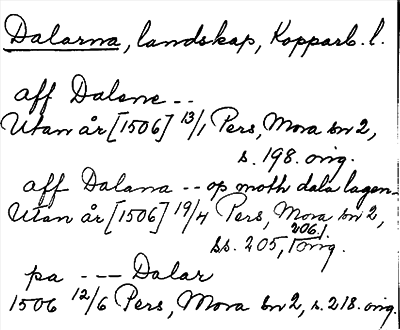 Dalarna, landskap, Kopparb. l.
aff Dalene --
Utan år [1506] 13/1 Pers, Mora bn 2,
s. 198. orig.
aff Dalana -- op moth dala lagen
Utan år [1506] 19/4 Pers, Mora bn 2,
ss. 205, 206, orig.
pa --- Dalar
1506 12/6 Pers, Mora bn 2, s. 218. orig.